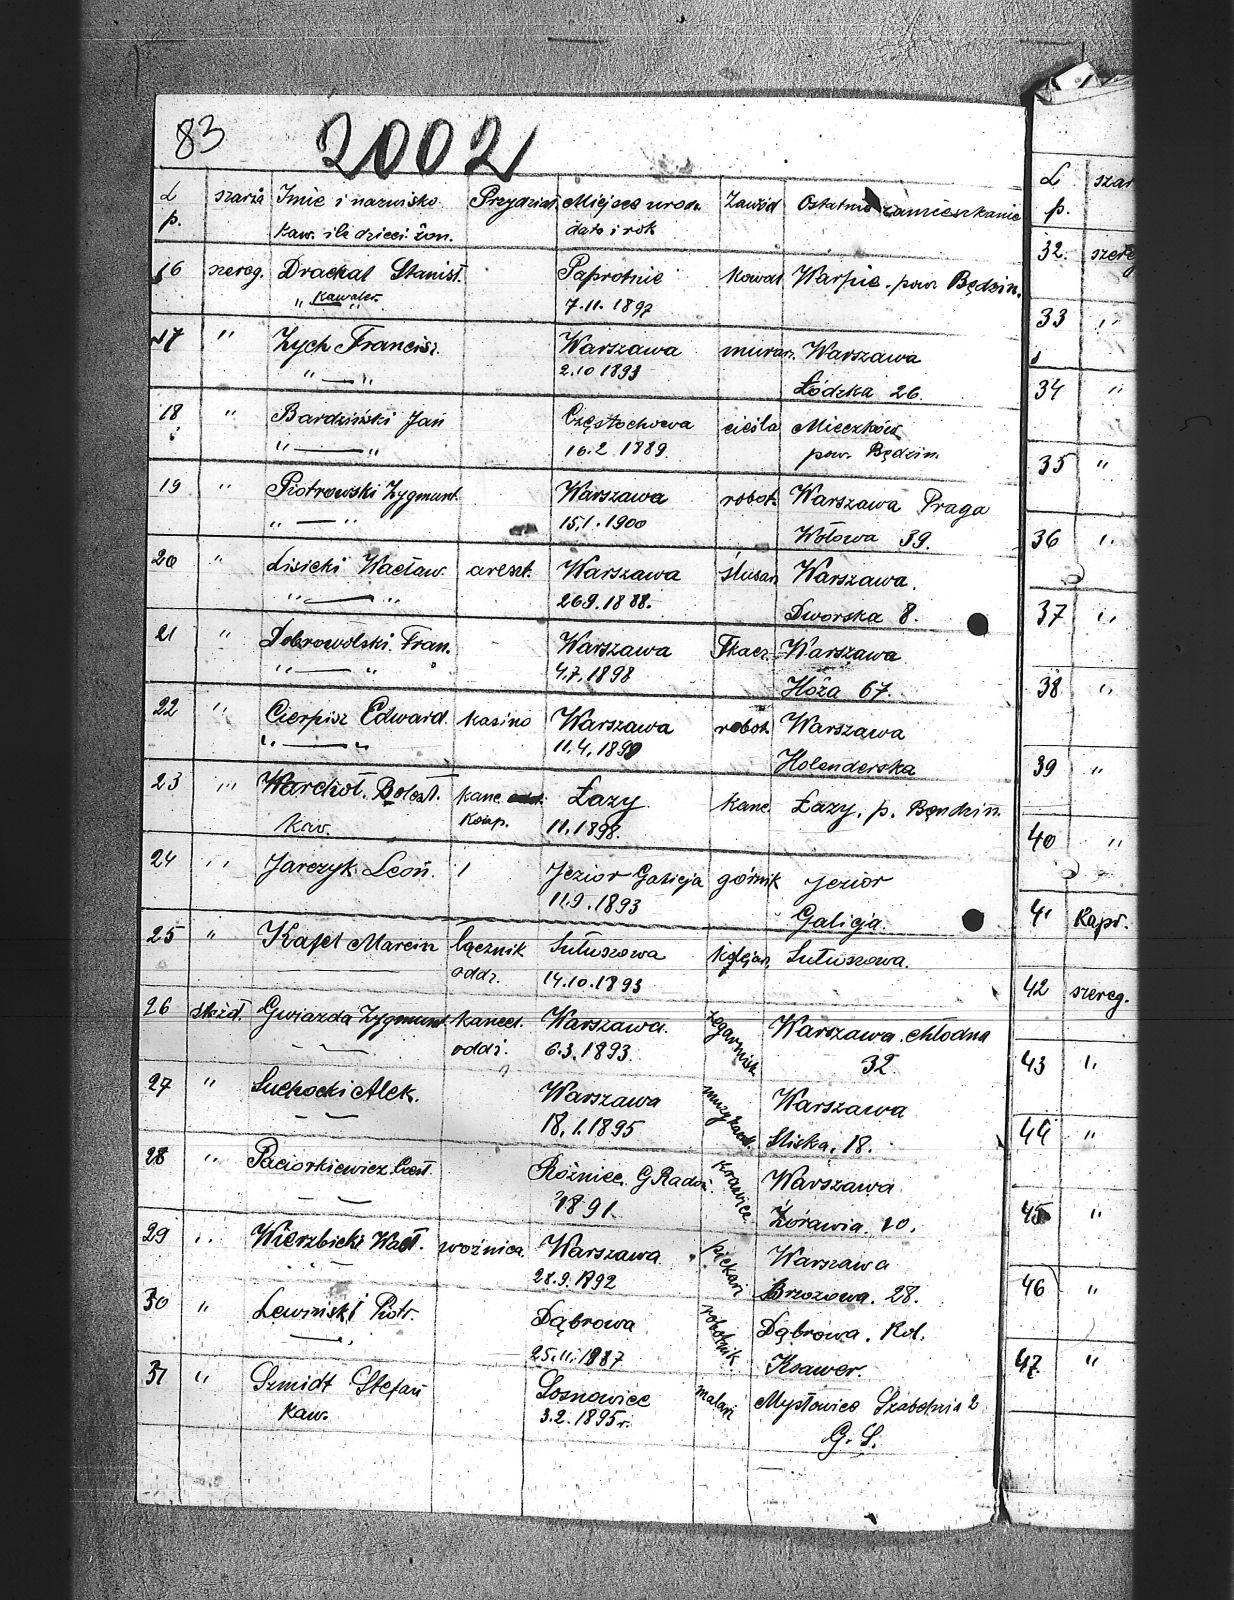 83
2002
L p. szarża Imie i nazwisko Przydział Miejsce urodz. Zawód Ostatnie zamieszkanie
kaw. ile dzieci żon. data i rok
16 szereg. Drachal Stanisł. Paprotnie kowal Warpie. pow. Będzin.
" kawaler " 7.11.1897
17 " Zych Francisz. Warszawa murarz. Warszawa
" — " 2.10 1893 Łódzka 26.
18 " Bardziński Jan Częstochowa cieśla Mieczków
" — " 16.2 1889 pow. Będzin.
19 " Piotrowski Zygmunt Warszawa robot. Warszawa Praga
" — " 15.1.1900 Wołowa 39.
20 " Lisicki Wacław. areszt. Warszawa ślusarz Warszawa.
" — " 26.9.1888. Dworska 8.
21 " Dobrowolski Fran. Warszawa Tkacz. Warszawa
" — " 4.7.1898 Hoża 67.
22 " Cierpisz Edward. kasino Warszawa robot. Warszawa
" — " 11.4.1899 Holenderska
23 " Warchoł. Bolesł. kanc. Łazy kanc Łazy. p. Bendzin.
kaw. komp. 11.1898.
24 " Jarczyk Leon. Jezior Galicja górnik Jezior
11.9.1893 Galicja.
25 " Kafel Marcin łącznik Sułuszowa kolejarz Sułuszowa.
oddz. 14.10.1893
26 st.żd. Gwiazda Zygmunt kancel. Warszawa. zegarmistrz Warszawa. Chłodna
oddz. 6.3.1893. 32
27 " Suchocki Alek. Warszawa muzykant. Warszawa
18.1.1895 Śliska. 18.
28 " Paciorkiewicz Czesł. Różniec. G.Radom. krawiec Warszawa
1891. Żórawia. 10.
29 " Wierzbicki Wacł. woźnica Warszawa piekarz Warszawa
28.9.1892 Brzozowa. 28.
30 " Lewiński Piotr. Dąbrowa robotnik. Dąbrowa. Kol.
25.11.1887 Ksawer.
31 " Szmidt Stefan Sosnowiec malarz Mysłowice Szabelnia 2
kaw. 3.2.1895r. G. S.
L p. szar
32. szereg
33 "
34 "
35 "
36 "
37 "
38 "
39 "
40 "
41 Kapr.
42 szereg.
43 "
44 "
45 "
46 "
47. "